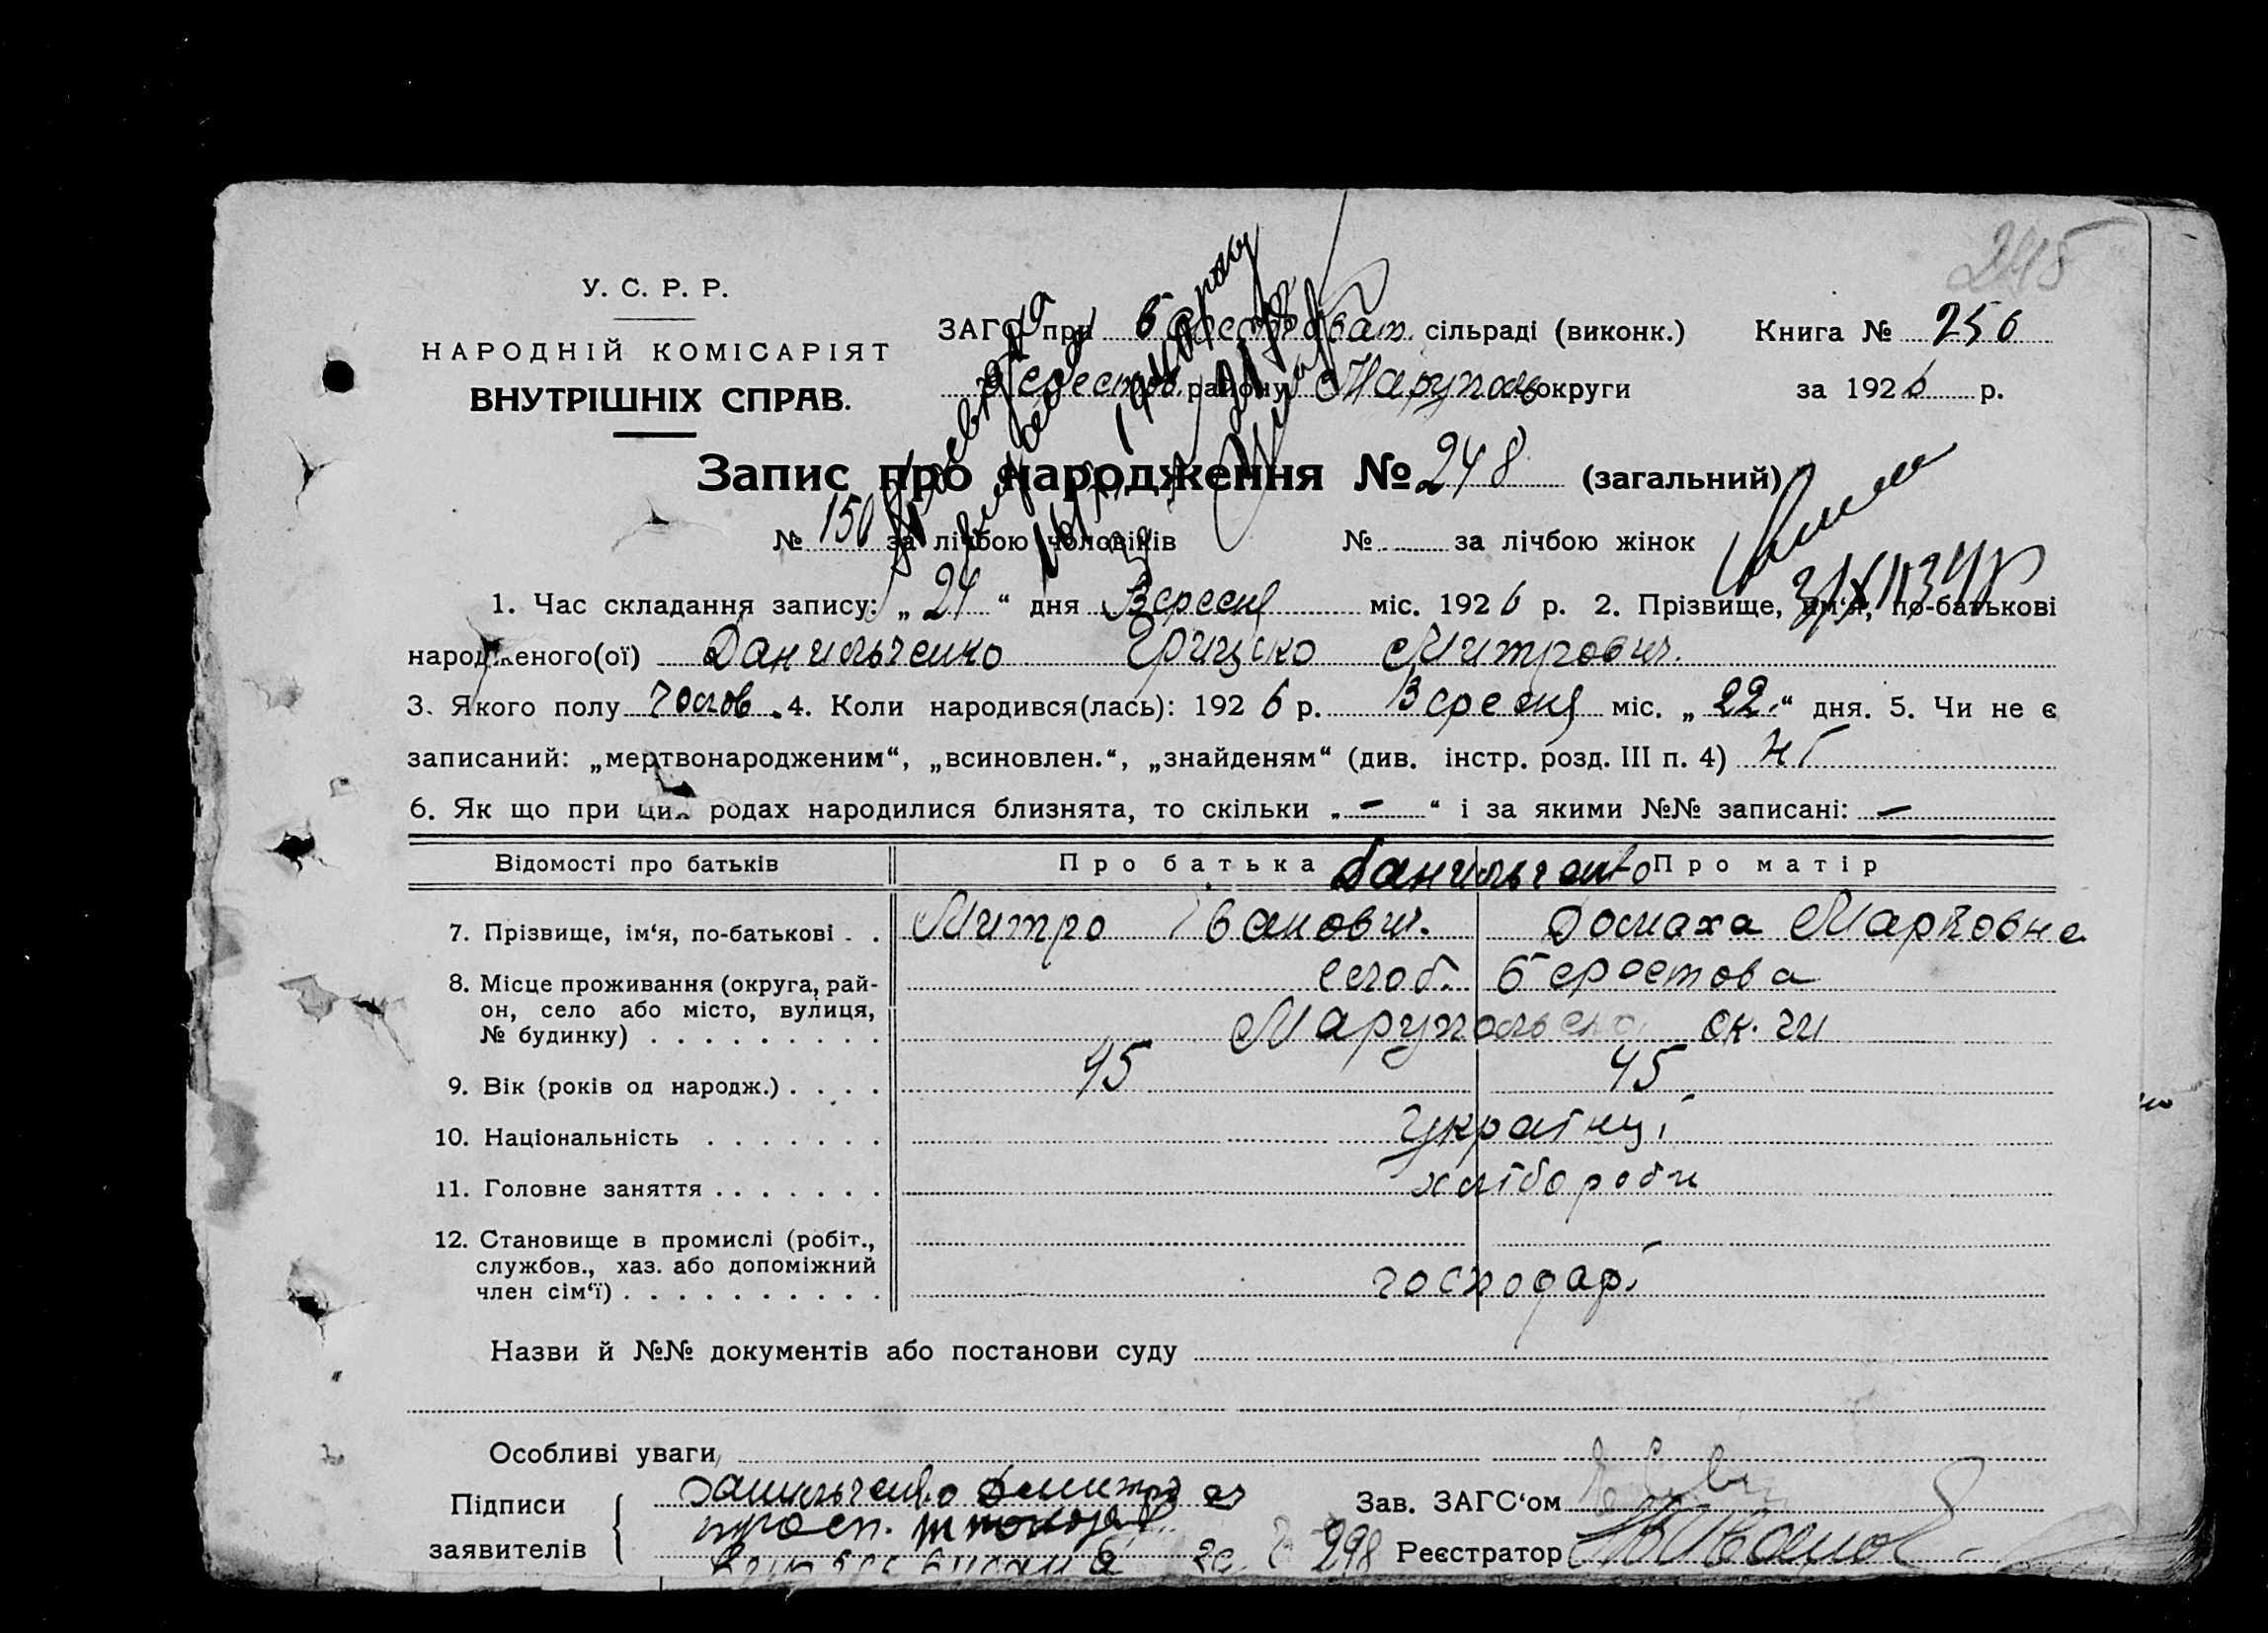 245
У. С. Р. Р.
НАРОДНІЙ КОМІСАРІЯТ
ВНУТРІШНІХ СПРАВ.
ЗАГС при сільраді (виконк.) Книга № 256
району Маруполь округи за 1926 р.
Запис про народження № 248 (загальний)
№ 150 за лічбою чоловіків № за лічбою жінок
1. Час складання запису: „24“ дня Вересня міс. 1926 р. 2. Прізвище, им‘я, по-батькові
народженого(ої) Данильченко Грицько Митрович.
3. Якого полу чолов. 4. Коли народився(лась): 1926 р. Вересня міс. „22“ дня. 5. Чи не є
записаний: „мертвонародженим“, „всиновлен.“, „знайденям“ (див. інстр. розд. III п. 4) Ні
6. Як що при цих родах народилися близнята, то скільки „–“ і за якими №№ записані: –
Відомості про батьків Про батька Данильченко Про матір
7. Прізвище, ім‘я, по-батькові . . Митро Іванович. Домаха Марковна
8. Місце проживання (округа, рай-
он, село або місто, вулиця,
№ будинку) . . . . . . . . .
слоб. Берестова
Марупольско ок.
9. Вік (років од народж.) . . . . 45 45
10. Національність . . . . . . . Українці
11. Головне заняття . . . . . . . хлібороби
12. Становище в промислі (робіт.,
службов., хаз. або допоміжний
член сім‘ї) . . . . . . . . . .
господарі
Назви й №№ документів або постанови суду
Особливі уваги
Підписи
заявителів
Данильченко Дмитро
Зав. ЗАГС‘ом
298 Реєстратор